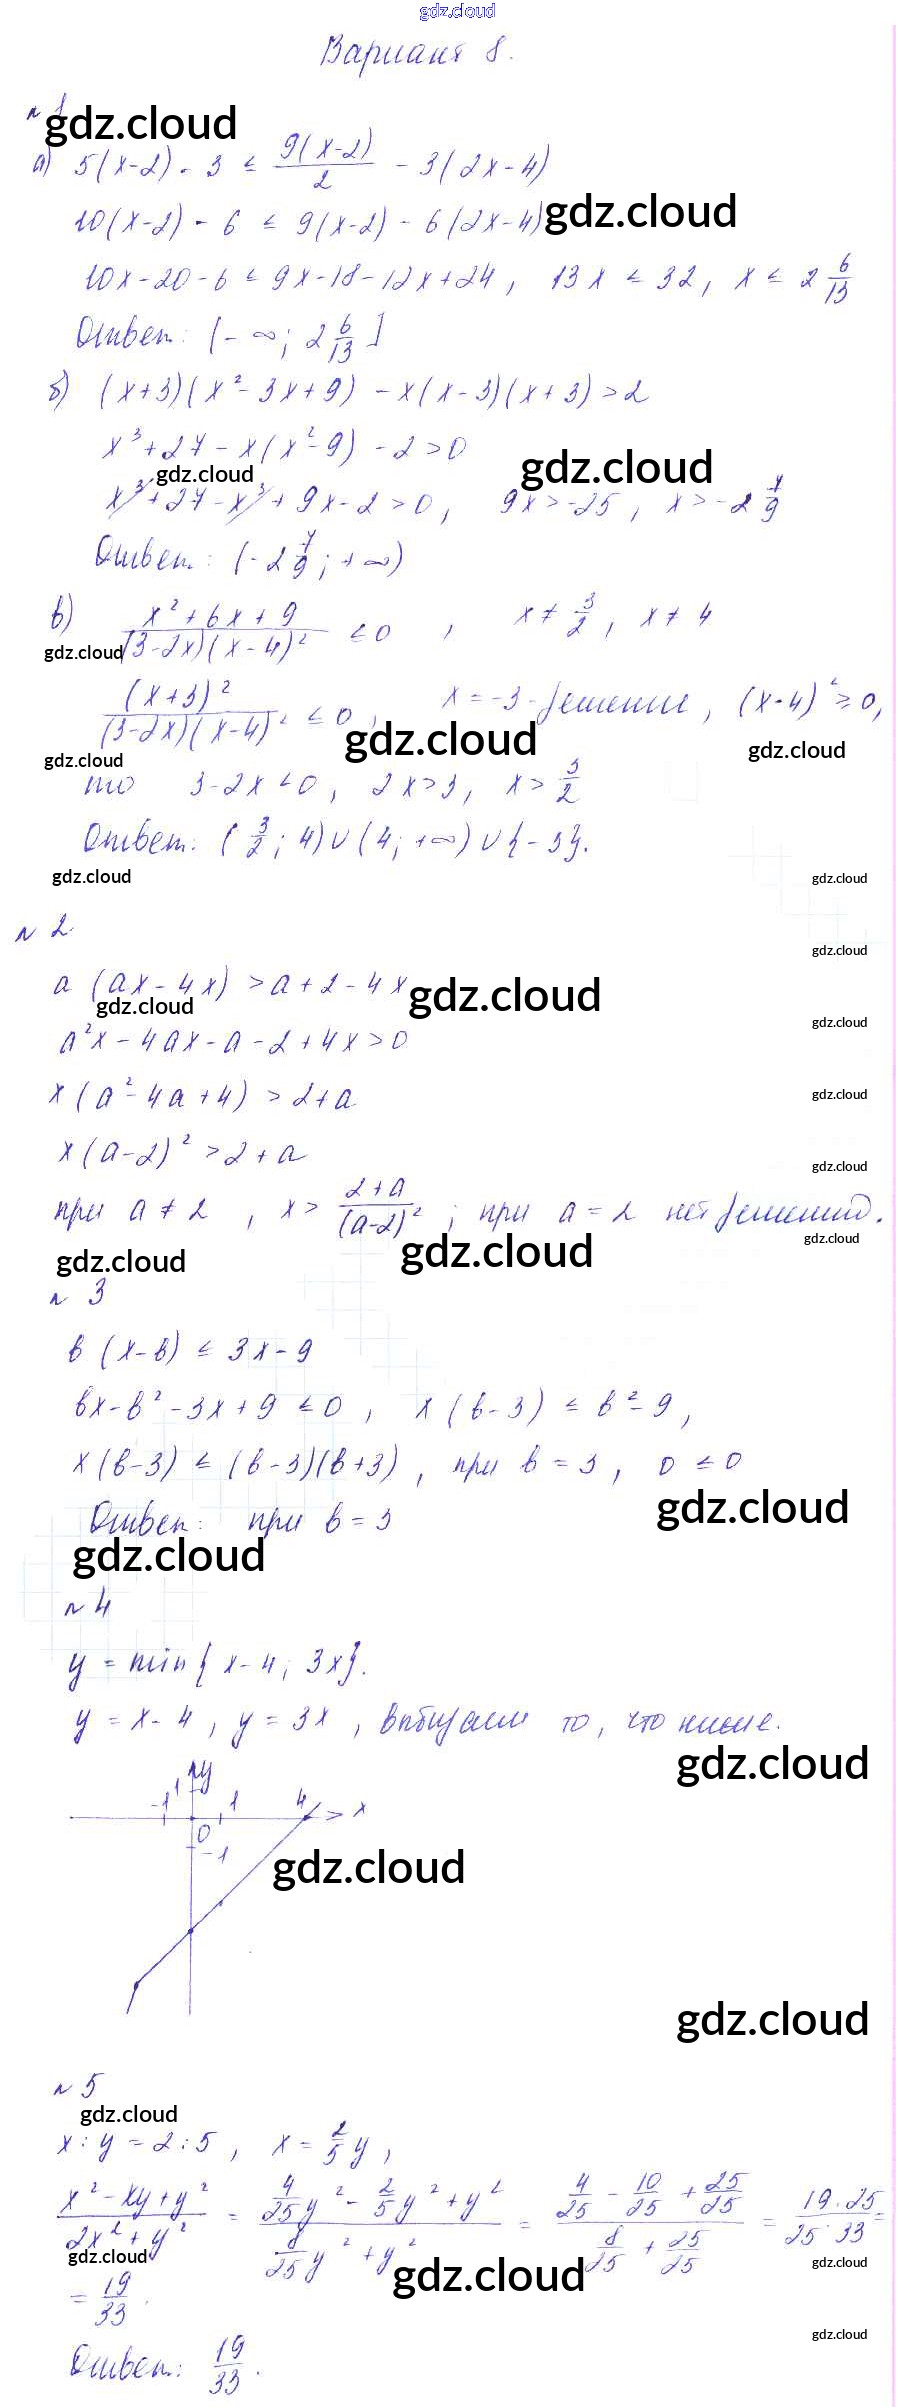 gdz.cloud
Вариант 8.
№ 1
gdz.cloud
а) 5(x-2) - 3 ≤ 9(x-2)/2 - 3(2x-4)
10(x-2) - 6 ≤ 9(x-2) - 6(2x-4)
gdz.cloud
10x-20-6 ≤ 9x-18-12x+24, 13x ≤ 32, x ≤ 2 6/13
Ответ: (-∞; 2 6/13]
б) (x+3)(x²-3x+9) - x(x-3)(x+3) > 2
x³+27-x(x²-9) - 2 > 0
gdz.cloud
gdz.cloud
x³+27-x³+9x-2 > 0, 9x > -25, x > -2 7/9
Ответ: (-2 7/9; +∞)
в) (x²+6x+9)/((3-2x)(x-4)²) ≤ 0, x ≠ 3/2, x ≠ 4
gdz.cloud
(x+3)²/((3-2x)(x-4)²) ≤ 0, x = -3 - решение, (x-4)² ≥ 0,
gdz.cloud
gdz.cloud
gdz.cloud
то 3-2x < 0, 2x > 3, x > 3/2
Ответ: (3/2; 4) ∪ (4; +∞) ∪ {-3}.
gdz.cloud
gdz.cloud
№ 2
gdz.cloud
a (ax-4x) > a+2-4x
gdz.cloud
gdz.cloud
gdz.cloud
a²x - 4ax - a - 2 + 4x > 0
x(a²-4a+4) > 2+a
gdz.cloud
x(a-2)² > 2+a
gdz.cloud
при a ≠ 2, x > (2+a)/(a-2)²; при a = 2 нет решений.
gdz.cloud
gdz.cloud
gdz.cloud
№ 3
в (x-в) ≤ 3x-9
вx-в²-3x+9 ≤ 0, x(в-3) ≤ в²-9,
x(в-3) ≤ (в-3)(в+3), при в = 3, 0 ≤ 0
gdz.cloud
Ответ: при в = 3
gdz.cloud
№ 4
y = min{x-4; 3x}.
y = x-4, y = 3x, выбираем то, что ниже.
gdz.cloud
1 y
-1 1 4 x
0
-1
gdz.cloud
gdz.cloud
№ 5
gdz.cloud
x : y = 2 : 5, x = 2/5 y,
(x²-xy+y²)/(2x²+y²) = (4/25 y² - 2/5 y² + y²)/(8/25 y² + y²) = (4/25 - 10/25 + 25/25)/(8/25 + 25/25) = (19·25)/(25·33) =
gdz.cloud
gdz.cloud
gdz.cloud
= 19/33.
gdz.cloud
Ответ: 19/33.